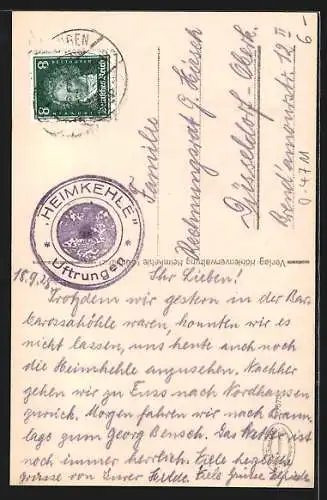 UNGEN
8 BEETHOVEN 8
Deutsches Reich
"HEIMKEHLE"
* *
Uftrungen
Familie
Rechnungsrat G. Hiesch
Düsseldorf-Oberk.
12 II
6 -
0.47 M
Verlag Höhlenverwaltung Heimkehle
18.9.
Ihr Lieben!
Trotzdem wir gestern in der Bar-
barossahöhle waren, konnten wir es
nicht lassen, uns heute auch noch
die Heimkehle anzusehen. Nachher
gehen wir zu Fuss nach Nordhausen
zurück. Morgen fahren wir nach Braun-
lage zum Georg Bensch. Das Wetter ist
noch immer herrlich. Viele herzliche
Grüsse von Eurer Viele Grüsse